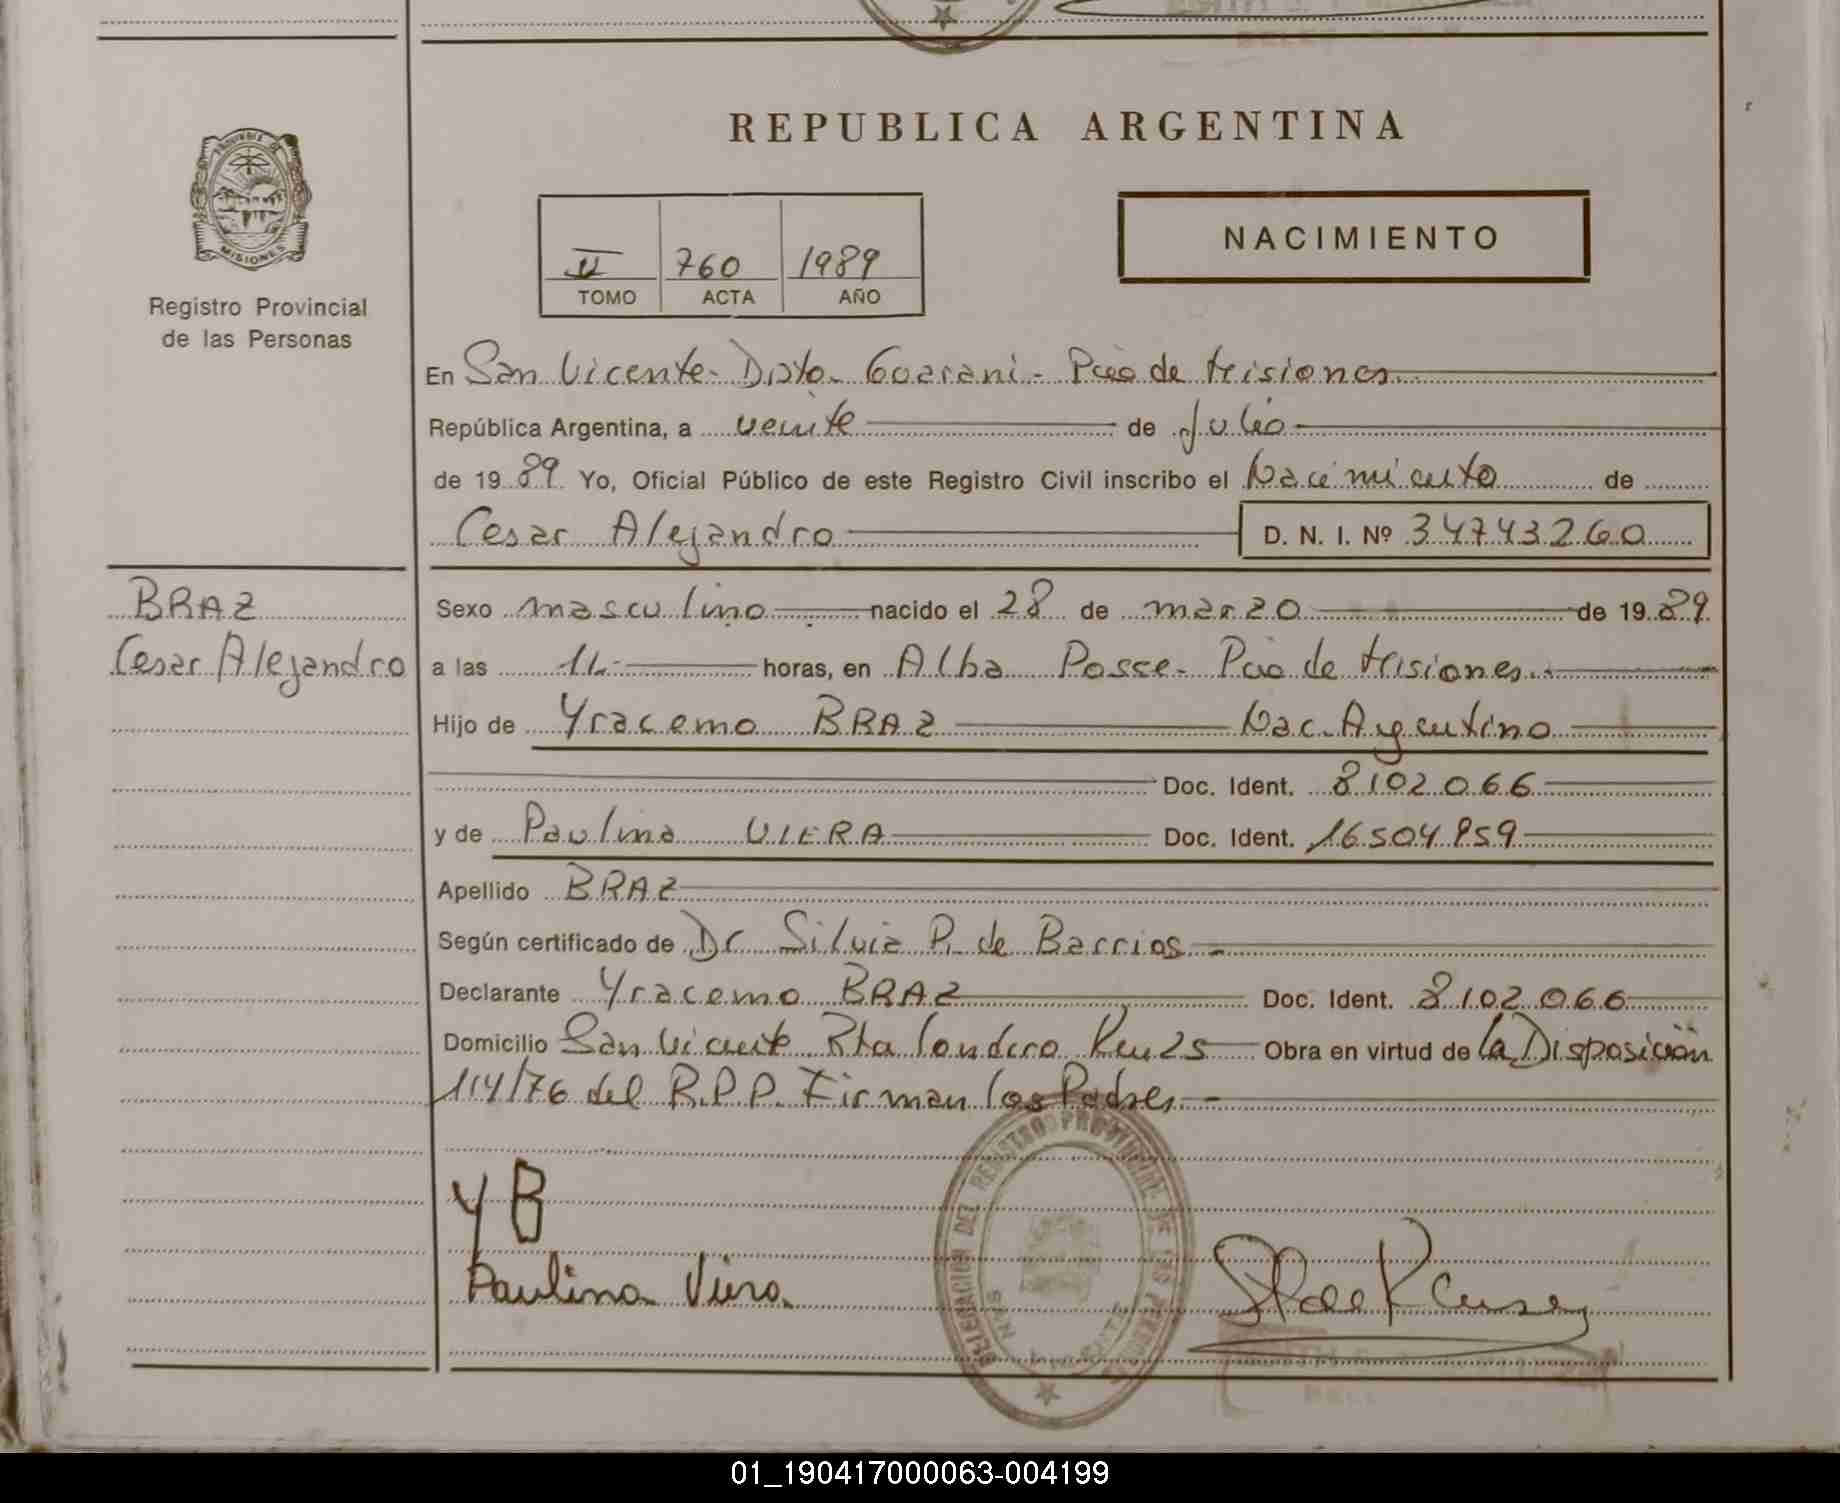 REPUBLICA ARGENTINA
PROVINCIA DE
MISIONES
Registro Provincial
de las Personas
II 760 1989
TOMO ACTA AÑO
NACIMIENTO
En San Vicente- Dpto. Guarani- Pcia de Misiones
República Argentina, a veinte de Julio
de 19 89 Yo, Oficial Público de este Registro Civil inscribo el Nacimiento de
Cesar Alejandro D. N. I. Nº 34743260
BRAZ
Cesar Alejandro
Sexo masculino nacido el 28 de marzo de 19 89
a las 14 horas, en Alba Posse- Pcia de Misiones.
Hijo de Yracemo BRAZ Nac. Argentino
Doc. Ident. 8102066
y de Paulina VIERA Doc. Ident. 16504959
Apellido BRAZ
Según certificado de Dr Silvia P. de Barrios.-
Declarante Yracemo BRAZ Doc. Ident. 8102066
Domicilio San Vicente Rta Londero Km 25 Obra en virtud de la Disposición
114/76 del R.P.P. Firman los Padres.-
Y B
Paulina Viera
DELEGACION DEL REGISTRO PROVINCIAL DE LAS PERSONAS
SAN VICENTE
01_190417000063-004199